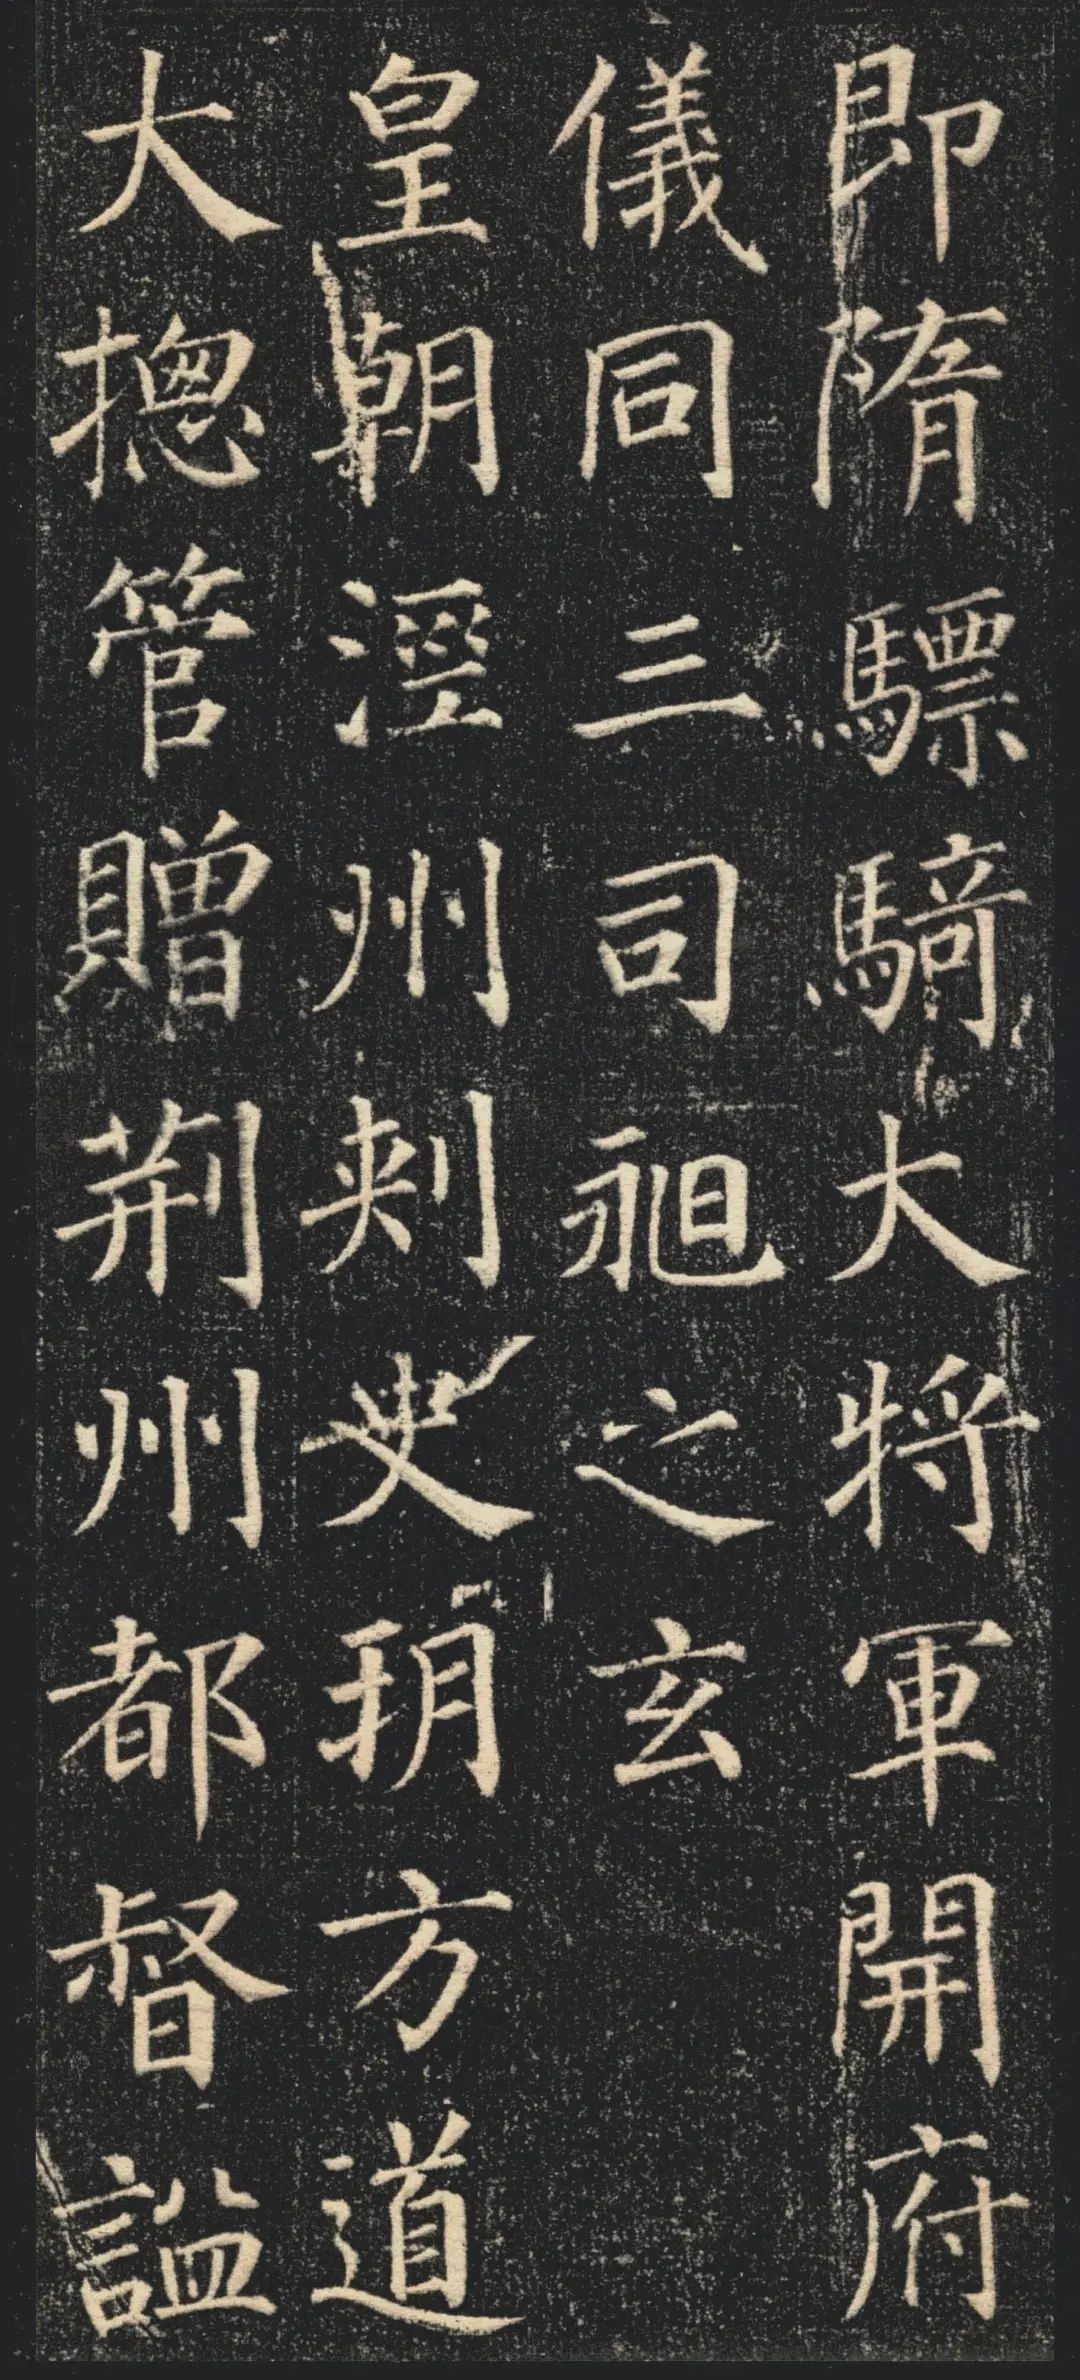 即隋驃騎大將軍開府
儀同三司昶之玄
皇朝涇州刺史朔方道
大摠管贈荊州都督謚